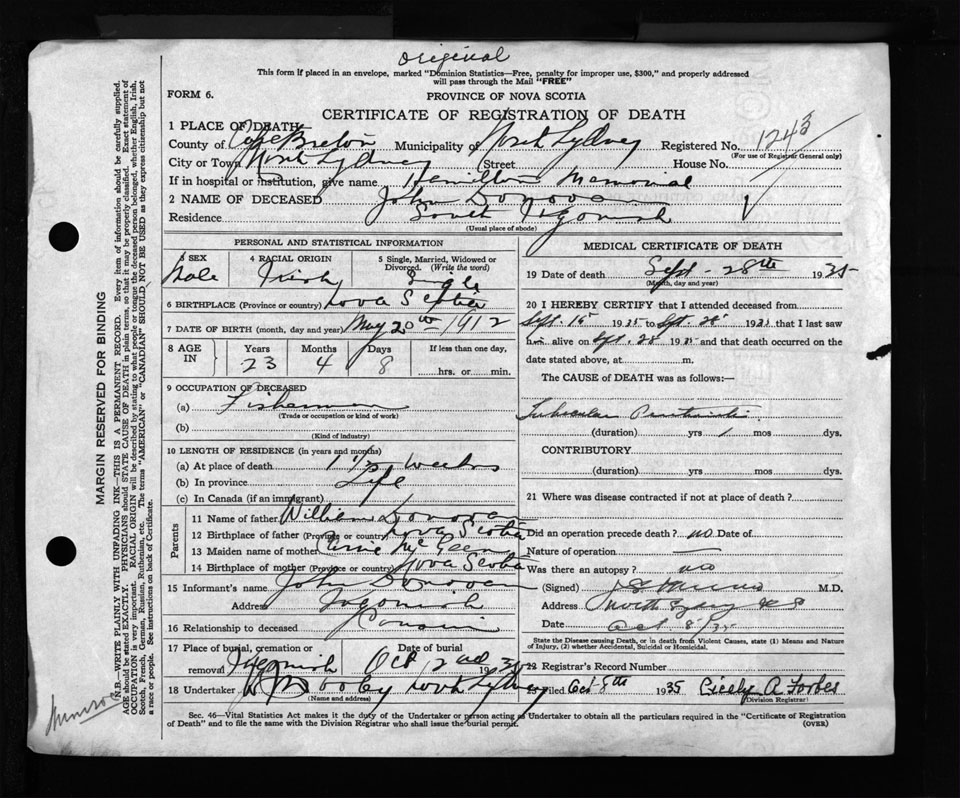 Original
This form if placed in an envelope, marked "Dominion Statistics—Free, penalty for improper use, $300," and properly addressed
will pass through the Mail "FREE"
FORM 6.
PROVINCE OF NOVA SCOTIA
CERTIFICATE OF REGISTRATION OF DEATH
1 PLACE OF DEATH
County of Cape Breton Municipality of North Sydney Registered No. 1243
(For use of Registrar General only)
City or Town North Sydney (Street House No.
If in hospital or institution, give name Hamilton Memorial
2 NAME OF DECEASED John Donovan
Residence South Ingonish
(Usual place of abode)
PERSONAL AND STATISTICAL INFORMATION
3 SEX Male
4 RACIAL ORIGIN Irish
5 Single, Married, Widowed or Divorced. (Write the word) Single
6 BIRTHPLACE (Province or country) Nova Scotia
7 DATE OF BIRTH (month, day and year) May 20th 1912
8 AGE IN Years 23 Months 4 Days 8 If less than one day, hrs. or min.
9 OCCUPATION OF DECEASED
(a) Fisherman
(Trade or occupation or kind of work)
(b)
(Kind of industry)
10 LENGTH OF RESIDENCE (in years and months)
(a) At place of death 1 1/2 weeks
(b) In province Life
(c) In Canada (if an immigrant)
Parents
11 Name of father William Donovan
12 Birthplace of father (Province or country) Nova Scotia
13 Maiden name of mother
14 Birthplace of mother (Province or country) Nova Scotia
15 Informant's name John Donovan
Address Ingonish
16 Relationship to deceased Cousin
17 Place of burial, cremation or removal Ingonish Date of burial Oct 2nd 1935
18 Undertaker Dooley North Sydney
(Name and address)
MEDICAL CERTIFICATE OF DEATH
19 Date of death Sept - 28th 1935
(Month, day and year)
20 I HEREBY CERTIFY that I attended deceased from
Sept. 15 1935 to Sept. 28 1935 that I last saw
him alive on Sept. 28 1935 and that death occurred on the
date stated above, at m.
The CAUSE of DEATH was as follows:—
Tubercular Peritonitis
(duration) yrs 1 mos dys.
CONTRIBUTORY
(duration) yrs mos dys.
21 Where was disease contracted if not at place of death?
Did an operation precede death? no Date of
Nature of operation —
Was there an autopsy? no
(Signed) Munro M.D.
Address North Sydney N S
Date Oct 8/35
State the Disease causing Death, or in death from Violent Causes, state (1) Means and Nature
of Injury, and (2) whether Accidental, Suicidal or Homicidal.
22 Registrar's Record Number
Filed Oct 8th 1935 Cicely A. Forbes
(Division Registrar)
Sec. 46—Vital Statistics Act makes it the duty of the Undertaker or person acting as Undertaker to obtain all the particulars required in the "Certificate of Registration
of Death" and to file the same with the Division Registrar who shall issue the burial permit.
(OVER)
MARGIN RESERVED FOR BINDING
N.B.—WRITE PLAINLY WITH UNFADING INK—THIS IS A PERMANENT RECORD. Every item of information should be carefully supplied.
AGE should be stated EXACTLY. PHYSICIANS should STATE CAUSE OF DEATH in plain terms, so that it may be properly classified. Exact statement of
OCCUPATION is very important. RACIAL ORIGIN will be described by stating to what people or tongue the deceased person belonged, whether English, Irish,
Scotch, French, German, Russian, Ruthenian, etc. The terms "AMERICAN" or "CANADIAN" SHOULD NOT BE USED as they express citizenship but not
a race or people. See instructions on back of Certificate.
Munro